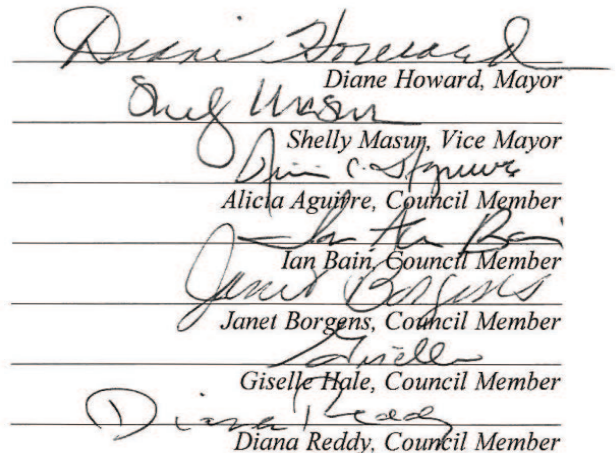 Diane Howard
Diane Howard, Mayor
Shelly Masur
Shelly Masur, Vice Mayor
Alicia C. Aguirre
Alicia Aguirre, Council Member
Ian Bain
Ian Bain, Council Member
Janet Borgens
Janet Borgens, Council Member
Giselle
Giselle Hale, Council Member
Diana Reddy
Diana Reddy, Council Member